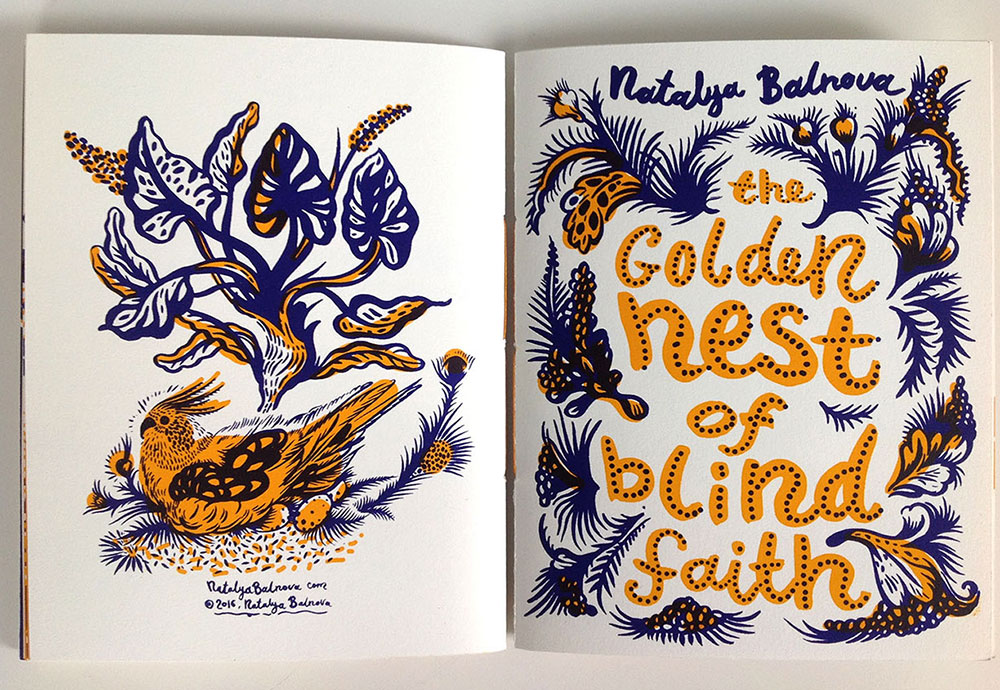 NatalyaBalnova com
© 2016, Natalya Balnova
Natalya Balnova
the
Golden
nest
of
blind
faith